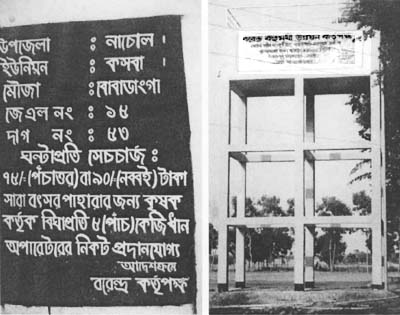 উপজেলা : নাচোল।
ইউনিয়ন : কসবা।
মৌজা : বাবাডাংগা
জে এল নং : ১৪
দাগ নং : ৫৩
ঘন্টাপ্রতি সেচচার্জ :
৭৫/-(পঁচাতর) বা ৯০/-(নব্বই) টাকা
সারা বৎসর পাহারার জন্য কৃষক
কর্তৃক বিঘাপ্রতি ৫ (পাঁচ) কেজি ধান
অপারেটরের নিকট প্রদানযোগ্য
আদেশক্রমে
বরেন্দ্র কর্তৃপক্ষ
বরেন্দ্র বহুমুখী উন্নয়ন কর্তৃপক্ষ